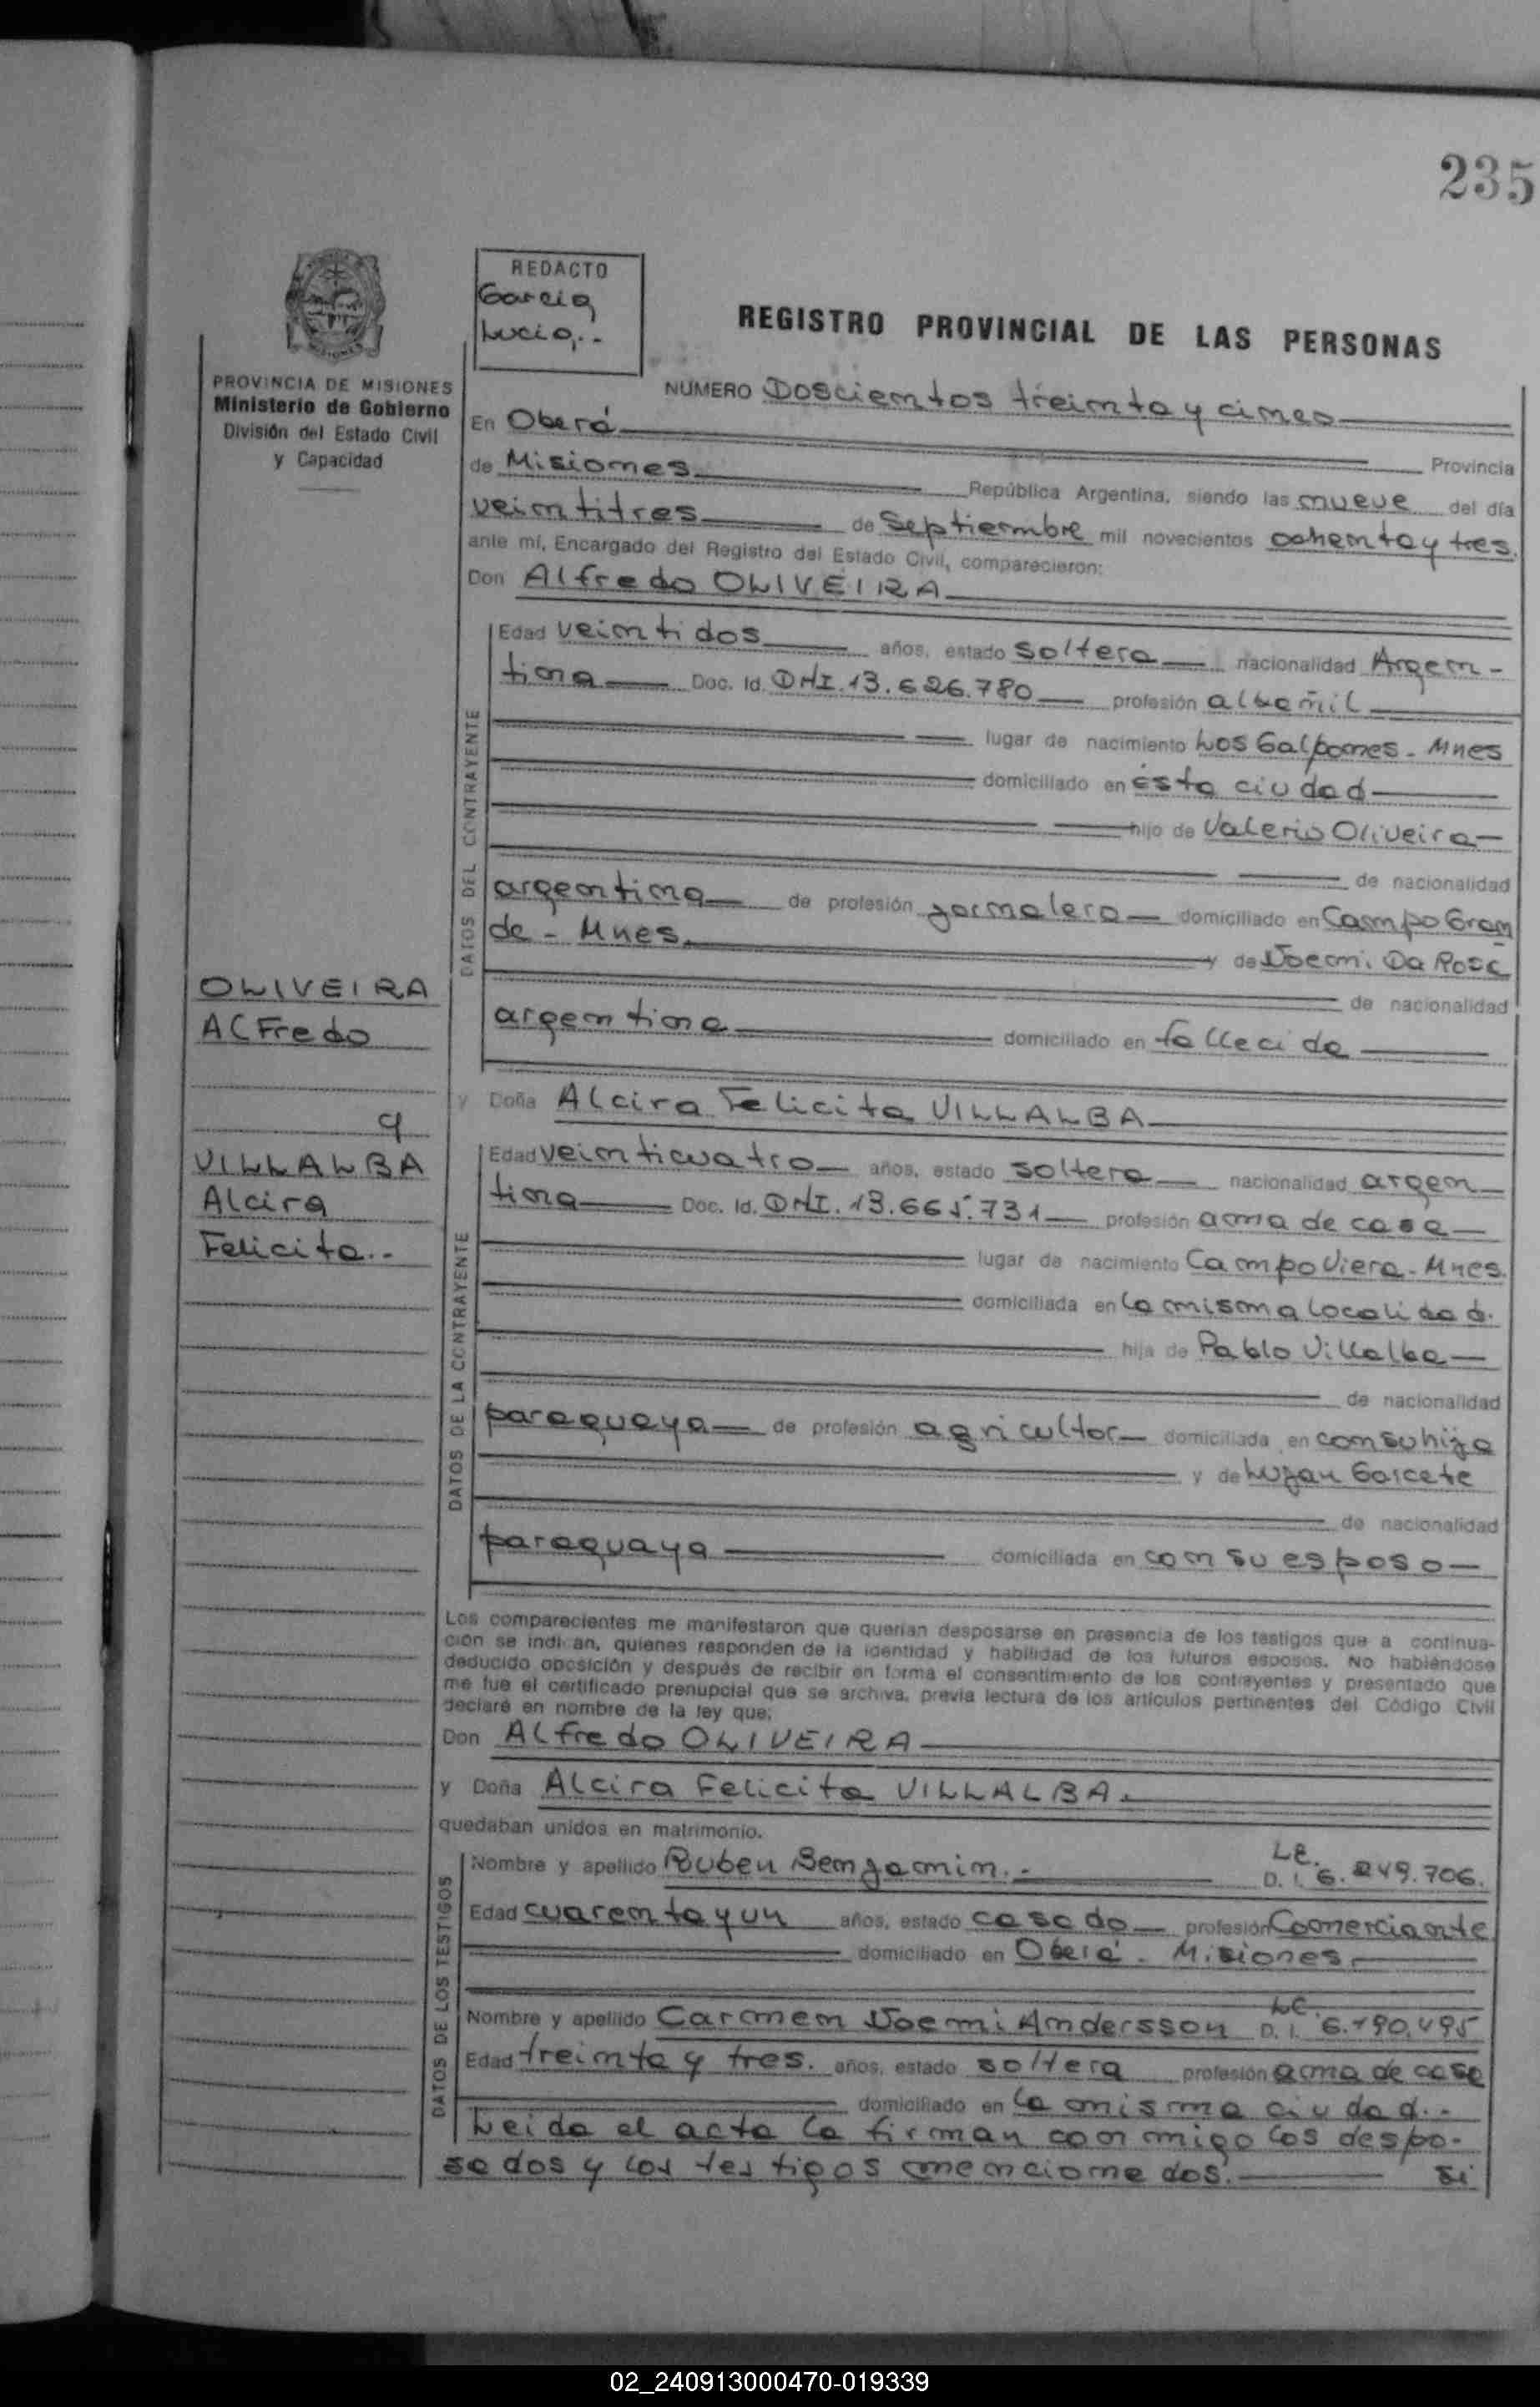 235
REDACTO
Garcia
Lucia..
REGISTRO PROVINCIAL DE LAS PERSONAS
PROVINCIA DE MISIONES
Ministerio de Gobierno
División del Estado Civil
y Capacidad
NUMERO Doscientos treinta y cinco
En Oberá
Provincia
de Misiones República Argentina, siendo las nueve del día
veintitres de Septiembre mil novecientos ochenta y tres.
ante mí, Encargado del Registro del Estado Civil, comparecieron:
Don Alfredo OLIVEIRA
DATOS DEL CONTRAYENTE
Edad veintidos años, estado soltero nacionalidad Argen-
tina Doc. Id. DNI. 13.626.780 profesión albañil
lugar de nacimiento Los Galpones - Mnes
domiciliado en ésta ciudad
hijo de Valerio Oliveira
de nacionalidad
argentina de profesión jornalero domiciliado en Campo Gran
de - Mnes.
y de Noemi Da Rosa
de nacionalidad
argentina domiciliado en fallecida
OLIVEIRA
Alfredo
y
VILLALBA
Alcira
Felicita..
y Doña Alcira Felicita VILLALBA
DATOS DE LA CONTRAYENTE
Edad veinticuatro años, estado soltera nacionalidad argen
tina Doc. Id. DNI. 13.665.731 profesión ama de casa
lugar de nacimiento Campo Viera - Mnes.
domiciliada en la misma localidad.
hija de Pablo Villalba
de nacionalidad
paraguaya de profesión agricultor domiciliada en con su hija
y de Lujan Garcete
de nacionalidad
paraguaya domiciliada en con su esposo
Los comparecientes me manifestaron que querían desposarse en presencia de los testigos que a continua-
ción se indican, quienes responden de la identidad y habilidad de los futuros esposos. No habiéndose
deducido oposición y después de recibir en forma el consentimiento de los contrayentes y presentado que
me fue el certificado prenupcial que se archiva, previa lectura de los artículos pertinentes del Código Civil
declaré en nombre de la ley que;
Don Alfredo OLIVEIRA
y Doña Alcira Felicita VILLALBA.
quedaban unidos en matrimonio.
DATOS DE LOS TESTIGOS
Nombre y apellido Ruben Benjamin.- L.E. D. I. 6.249.706.
Edad cuarenta y un años, estado casado profesión Comerciante
domiciliado en Oberá - Misiones
Nombre y apellido Carmen Noemi Andersson L.C. D. I. 6.190.495
Edad treinta y tres. años, estado soltera profesión ama de casa
domiciliado en la misma ciudad.-
Leida el acta la firman con migo los despo-
sados y los testigos mencionados. Si
02_240913000470-019339